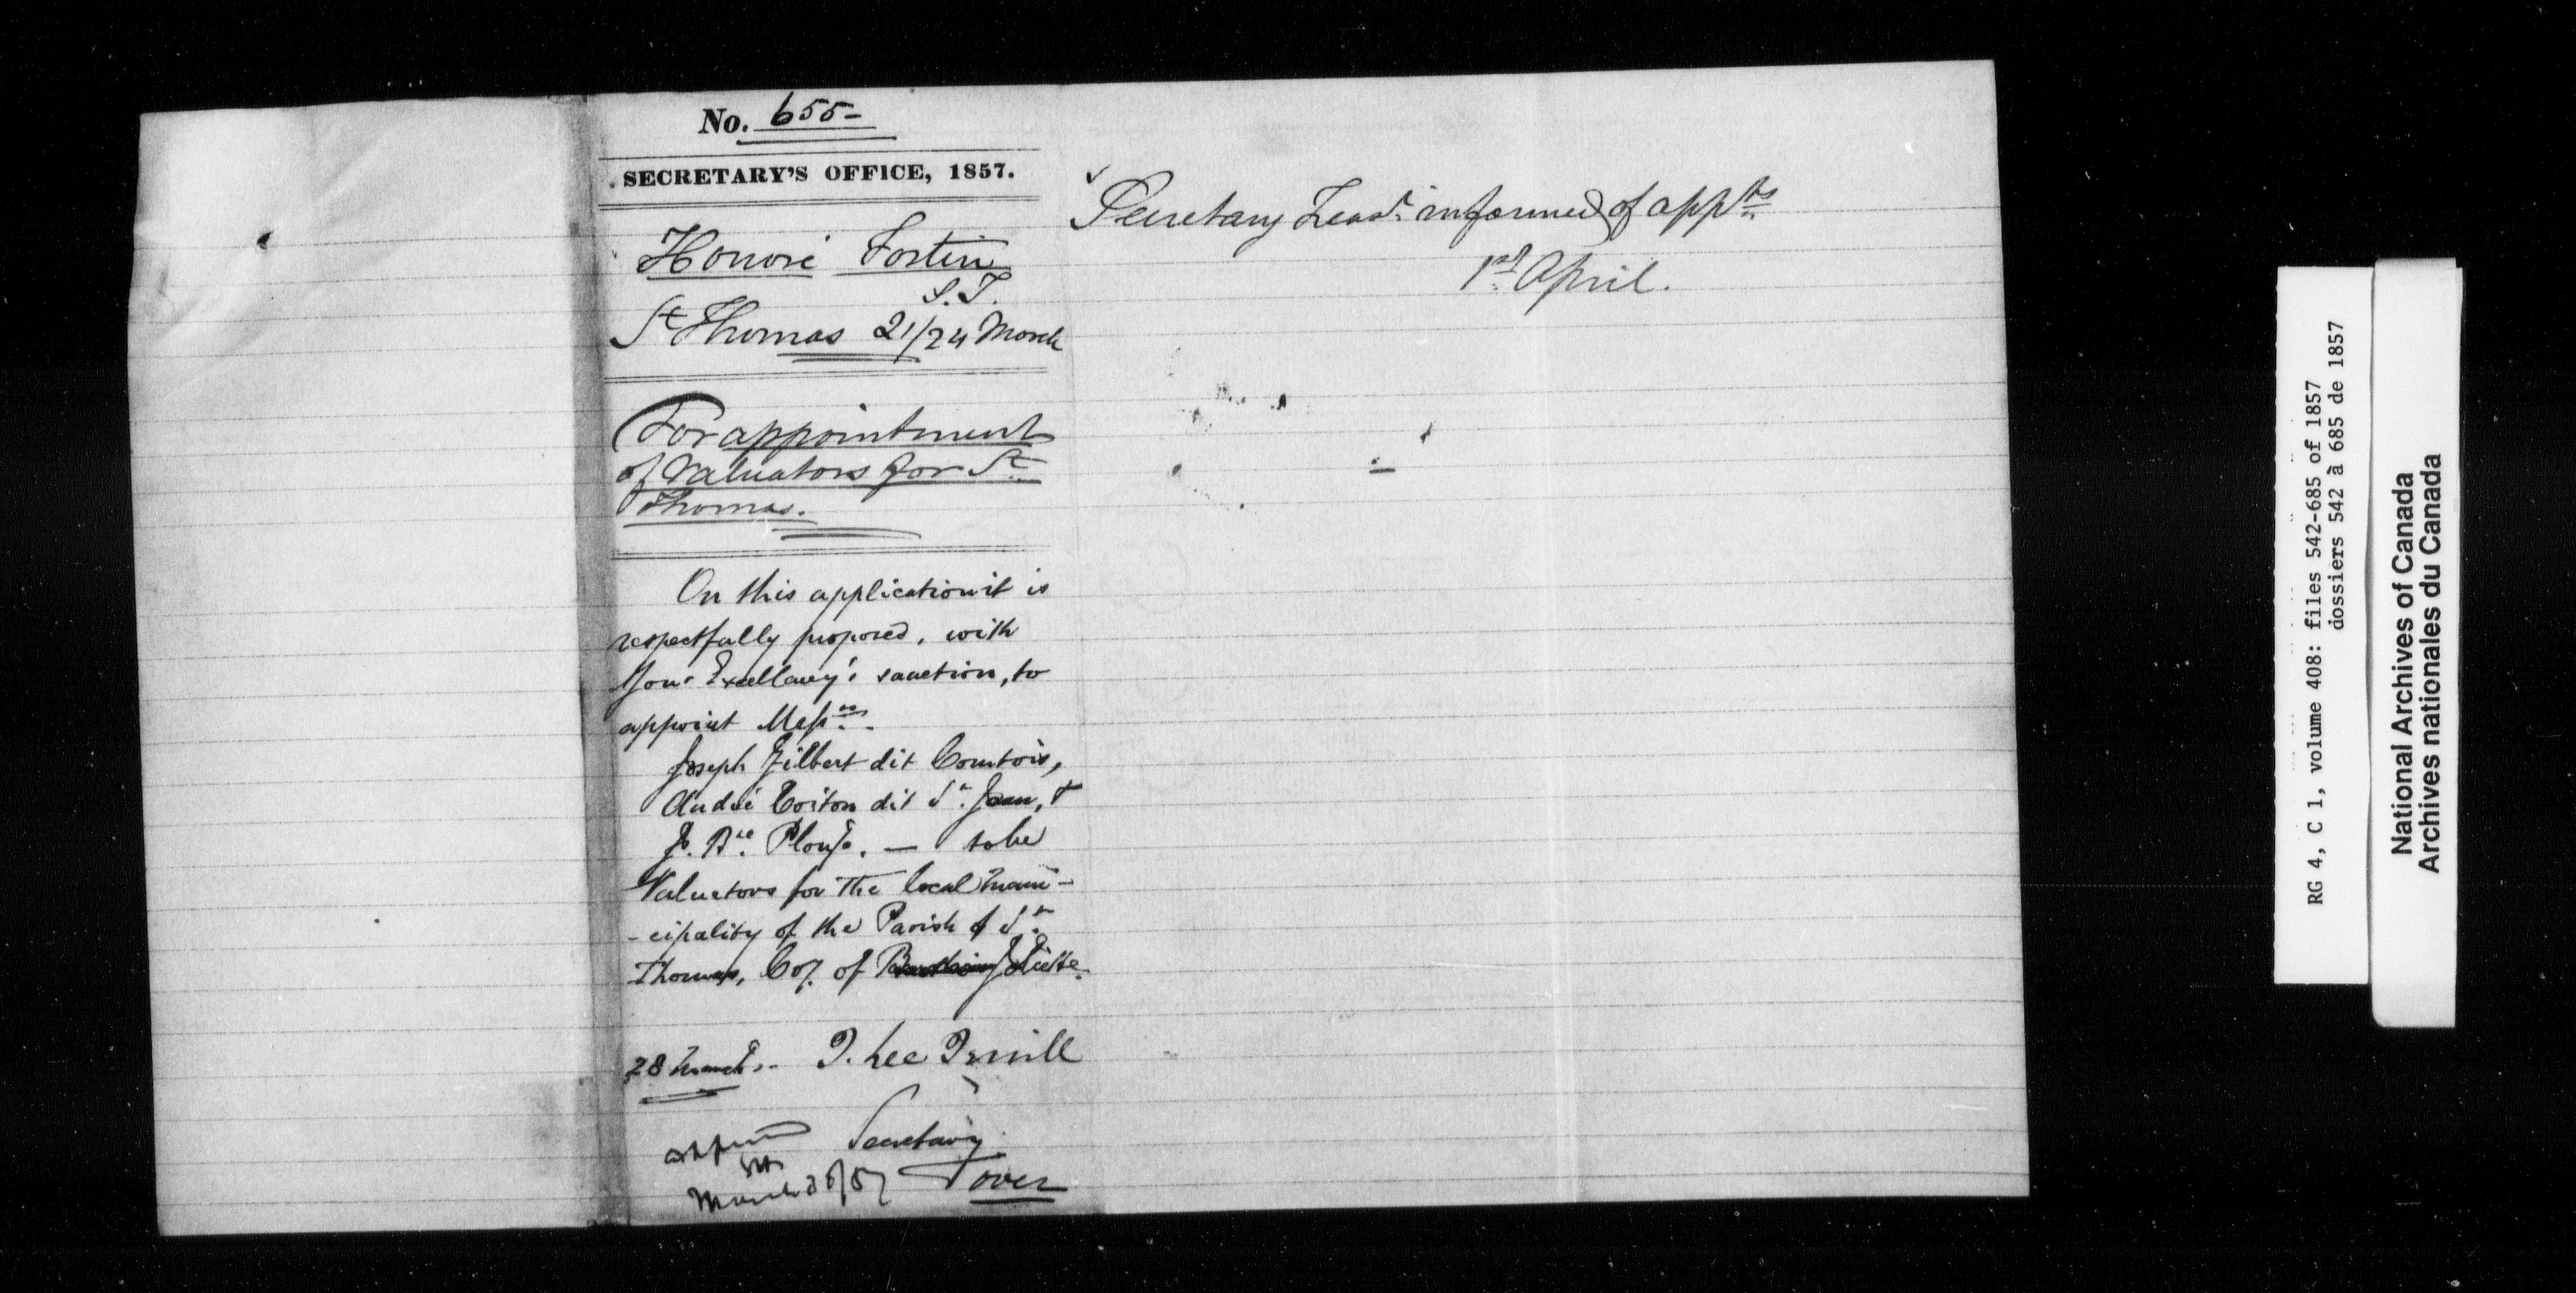 No. 655-
SECRETARY'S OFFICE, 1857.
Honoré Fortin
S.T.
St Thomas 21/24 March
For appointment
of Valuators for St
Thomas.
On this application it is
respectfully proposed, with
Your Excellency's sanction, to
appoint Messrs.
Joseph Gilbert dit Comtois,
André Coiton dit St. Jean, &
J. Bte. Ploufe. — to be
Valuators for the local muni-
-cipality of the Parish of St.
Thomas, Coy. of Berthier Joliette.
28 March. T. Lee Terrill
Secretary
March 28/57
Over
Secretary Treasr. informed of appts
1st April.
RG 4, C 1, volume 408: files 542-685 of 1857
dossiers 542 à 685 de 1857
National Archives of Canada
Archives nationales du Canada